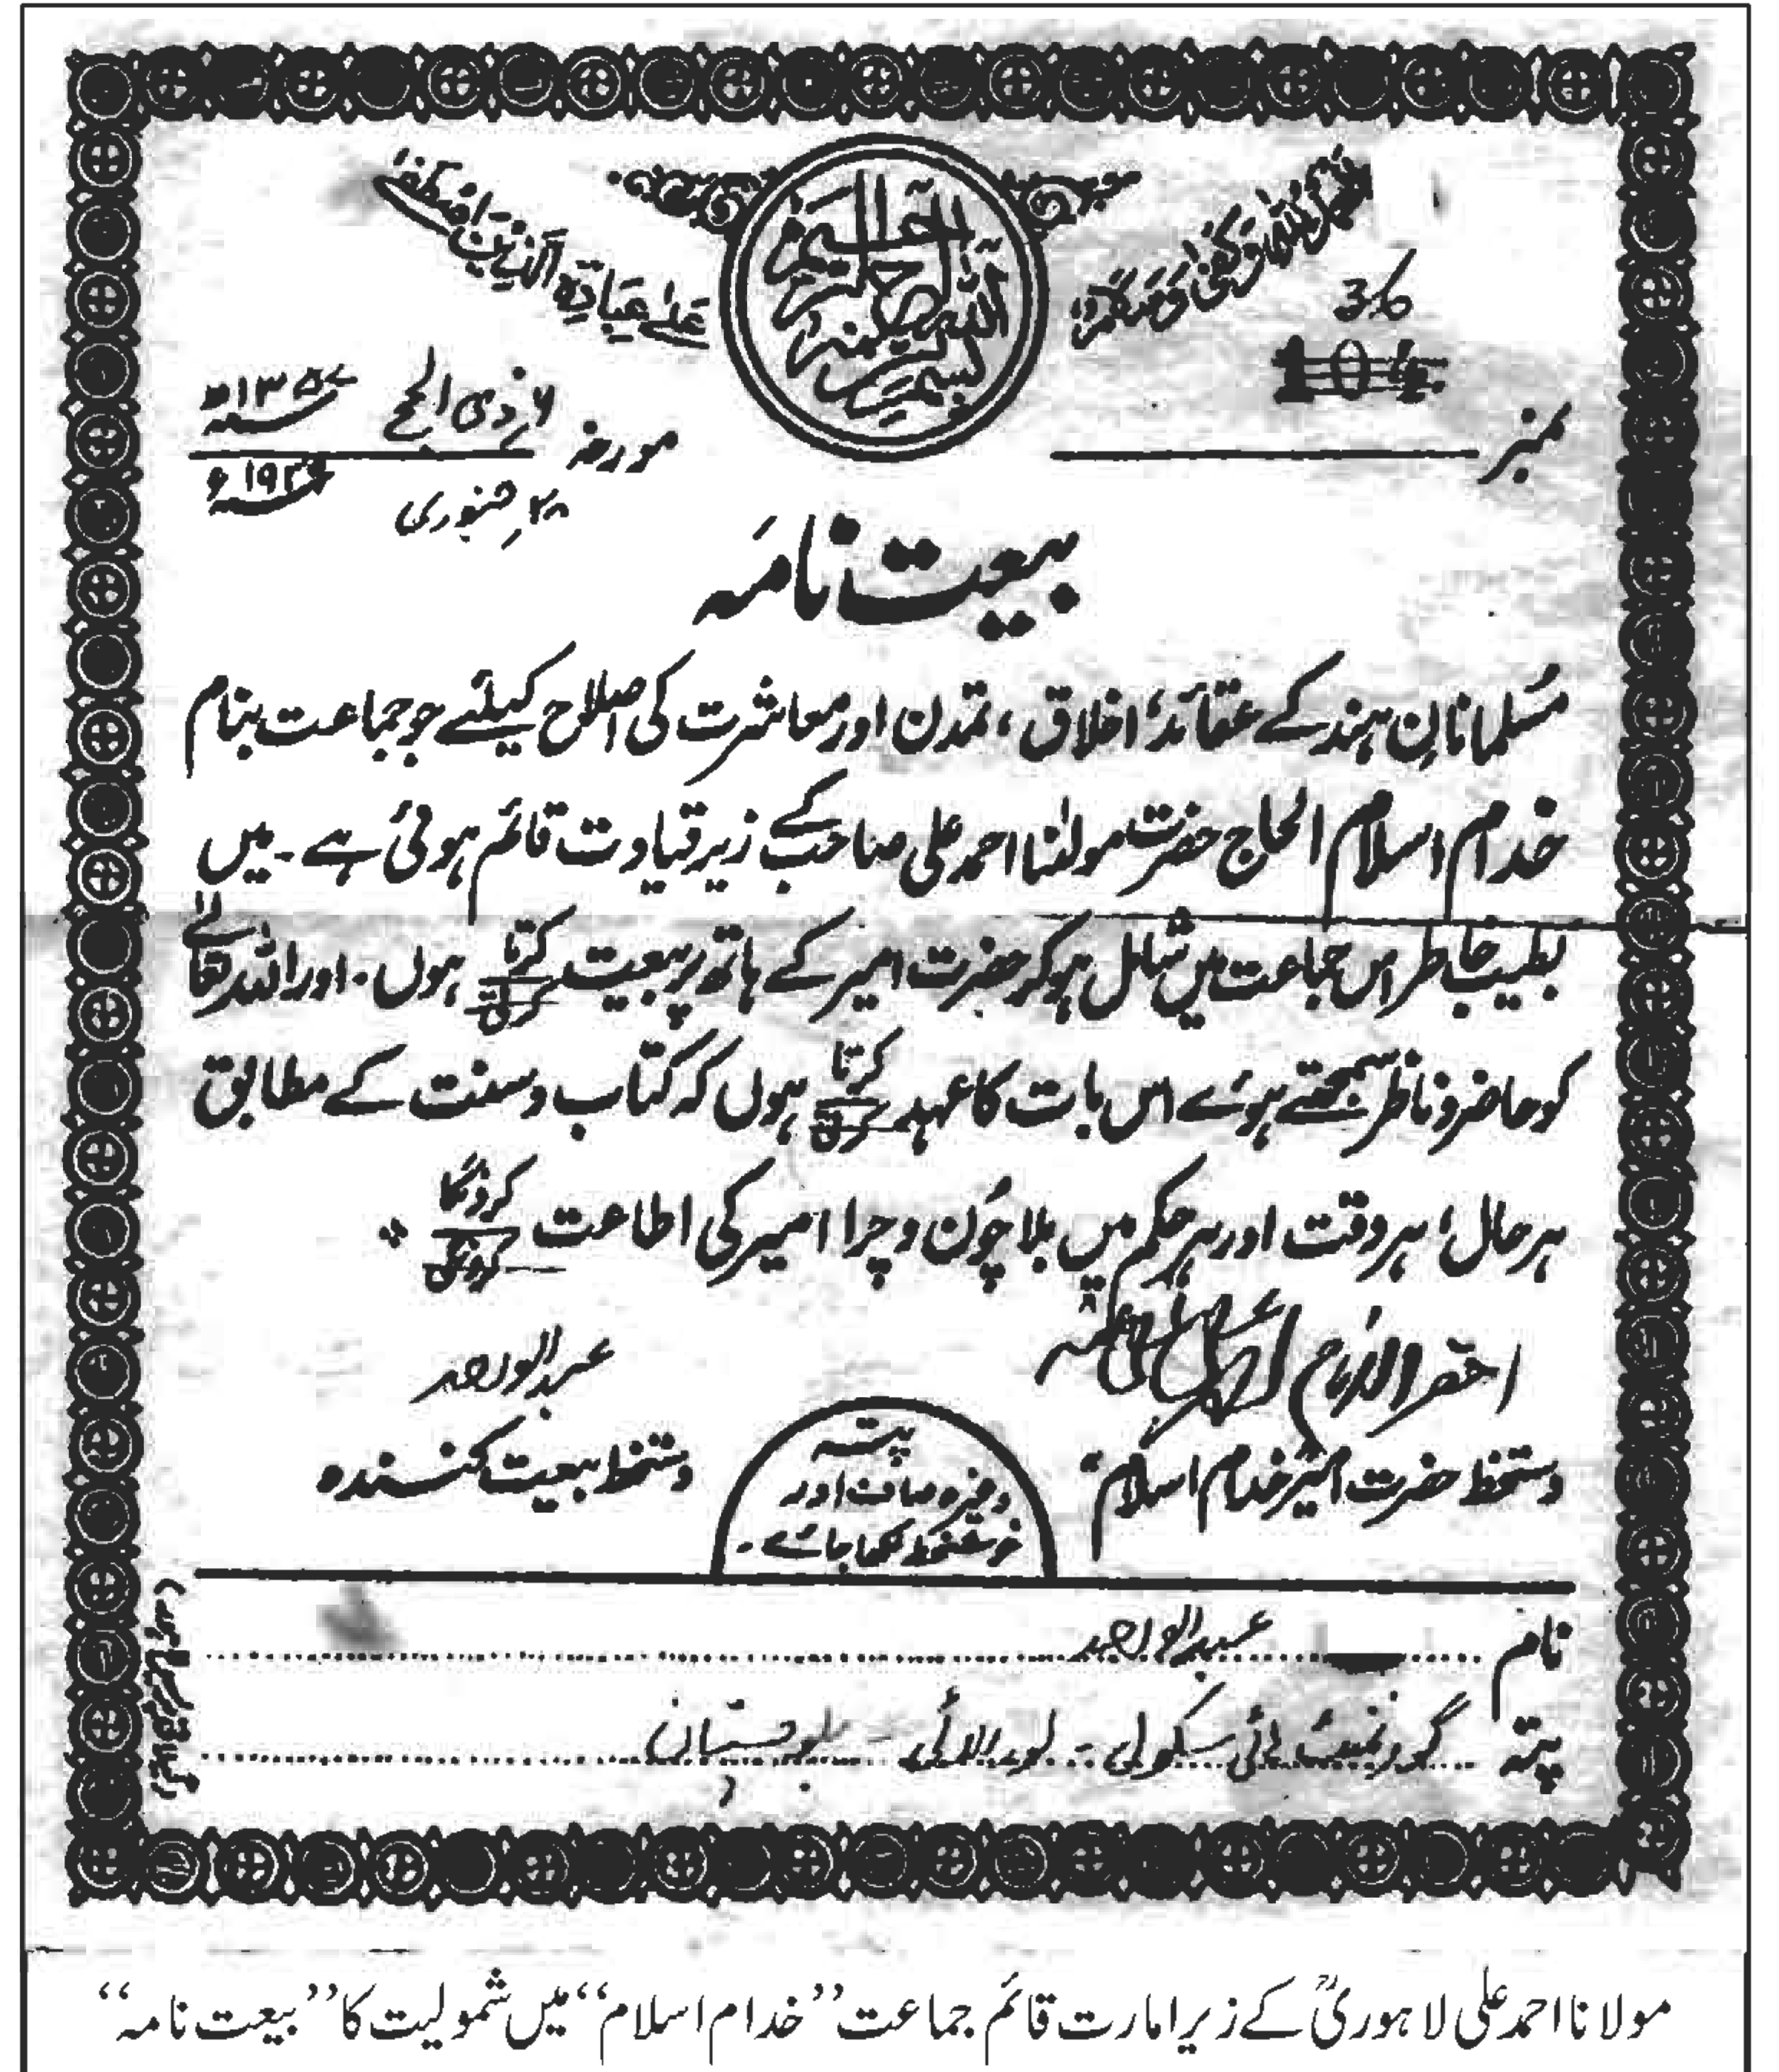 بسم اللہ الرحمن الرحیم
علیٰ عبادہ الذین اصطفےٰ
36
104
نمبر
مورخہ ۶ ذی الحج
۲۸ جنوری
بیعت نامہ
مُسلمانانِ ہند کے عقائد، اخلاق، تمدن اور معاشرت کی اصلاح کیلئے جو جماعت بنام
خدام اسلام الحاج حضرت مولٰنا احمد علی صاحب کے زیر قیادت قائم ہوئی ہے۔ میں
بطیب خاطر اس جماعت میں شامل ہو کر حضرت امیر کے ہاتھ پر بیعت کرتا کرتی ہوں۔ اور اللہ تعالےٰ
کو حاضر و ناظر سمجھتے ہوئے اس بات کا عہد کرتا کرتی ہوں کہ کتاب و سنت کے مطابق
ہر حال، ہر وقت اور ہر حکم میں بلا چُون و چرا امیر کی اطاعت کرونگا کرونگی
احقر الانام احمد علی عفی عنہ
عبدالواحد
دستخط حضرت امیر خدام اسلام
دستخط بیعت کنندہ
پتہ
وغیرہ صاف اور
خوشخط لکھا جائے۔
نام عبدالواحد
پتہ گورنمنٹ ہائی سکول - لورالائی - بلوچستان
مولانا احمد علی لاہوریؒ کے زیر امارت قائم جماعت ’’خدام اسلام‘‘ میں شمولیت کا ’’بیعت نامہ‘‘